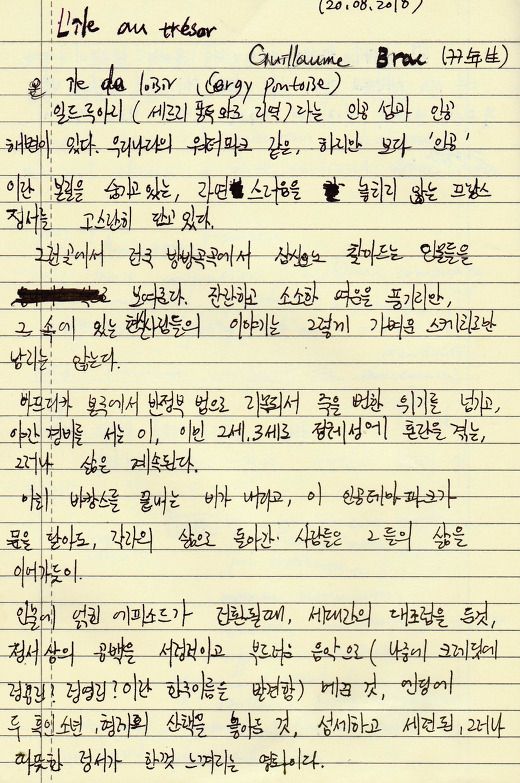 (20.08.2018)
L'île au trésor
Guillaume Brac (77年生)
île de loisir (Cergy pontoise)
일드루아지 ( 세르지 퐁투와즈 지역 ) 라는 인공 섬과 인공
해변이 있다. 우리나라의 워터파크 같은, 하지만 보다 '인공'
이란 본질을 숨기고 있는, 자연스러움을 놓치지 않는 프랑스
정서를 고스란히 담고 있다.
그런 곳에서 전국 방방곡곡에서 삼삼오오 찾아드는 인물들을
보여준다. 잔잔하고 소소한 여운을 풍기지만,
그 속에 있는 사람들의 이야기는 그렇게 가벼운 스케치로만
남지는 않는다.
아프리카 본국에서 반정부 범으로 지목되서 죽을 뻔한 위기를 넘기고,
야간 경비를 서는 이, 이민 2세, 3세로 정체성에 혼란을 겪는,
그러나 삶은 계속된다.
마치 바캉스를 끝내는 비가 내리고, 이 인공테마파크가
문을 닫아도, 각자의 삶으로 돌아간 사람들은 그들의 삶을
이어가듯이.
인물에 얽힌 에피소드가 전환될때, 세대간의 대조됨을 둔것,
정서상의 공백을 서정적이고 부드러운 음악으로 ( 나중에 크레딧에
정용진? 정영진? 이란 한국이름을 발견함) 메꾼 것, 엔딩에
두 흑인소년, 형제의 산책을 담아둔 것, 섬세하고 세련된, 그러나
따뜻한 정서가 한껏 느껴지는 영화이다.